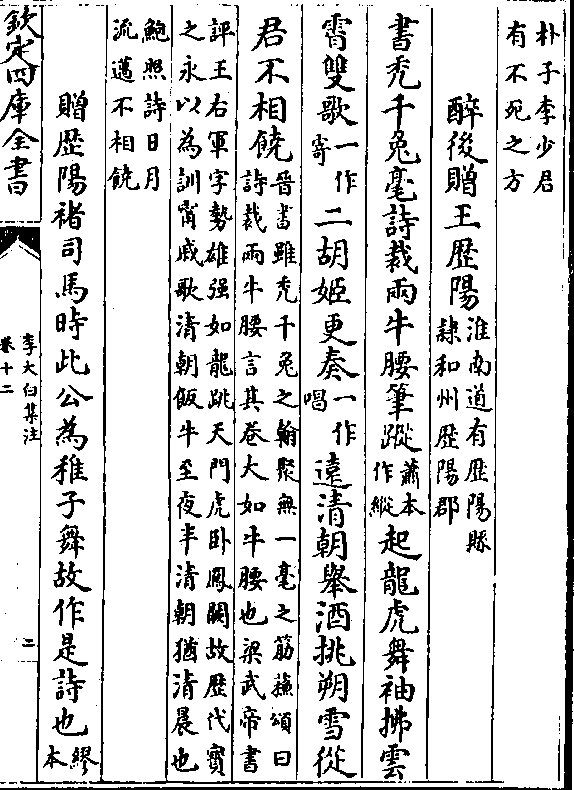 朴子李少君
有不死之方
醉後贈王歴陽淮南道有歴陽縣
隷和州歴陽郡
書禿千兔毫詩裁兩牛腰筆蹤蕭本
作縱起龍虎舞袖拂雲
霄雙歌一作
寄二胡姬更奏一作
唱遠清朝舉酒挑朔雪從
君不相饒晉書雖禿千兔之翰聚無一毫之筋蘇頌曰
詩裁兩牛腰言其卷大如牛腰也梁武帝書
評王右軍字勢雄强如龍跳天門虎卧鳳闕故歴代寳
之永以為訓甯戚歌清朝飯牛至夜半清朝猶清晨也
鮑照詩日月
流邁不相饒
贈歴陽褚司馬時此公為稚子舞故作是詩也繆
本
欽定四庫全書
李太白集注
卷十二
二